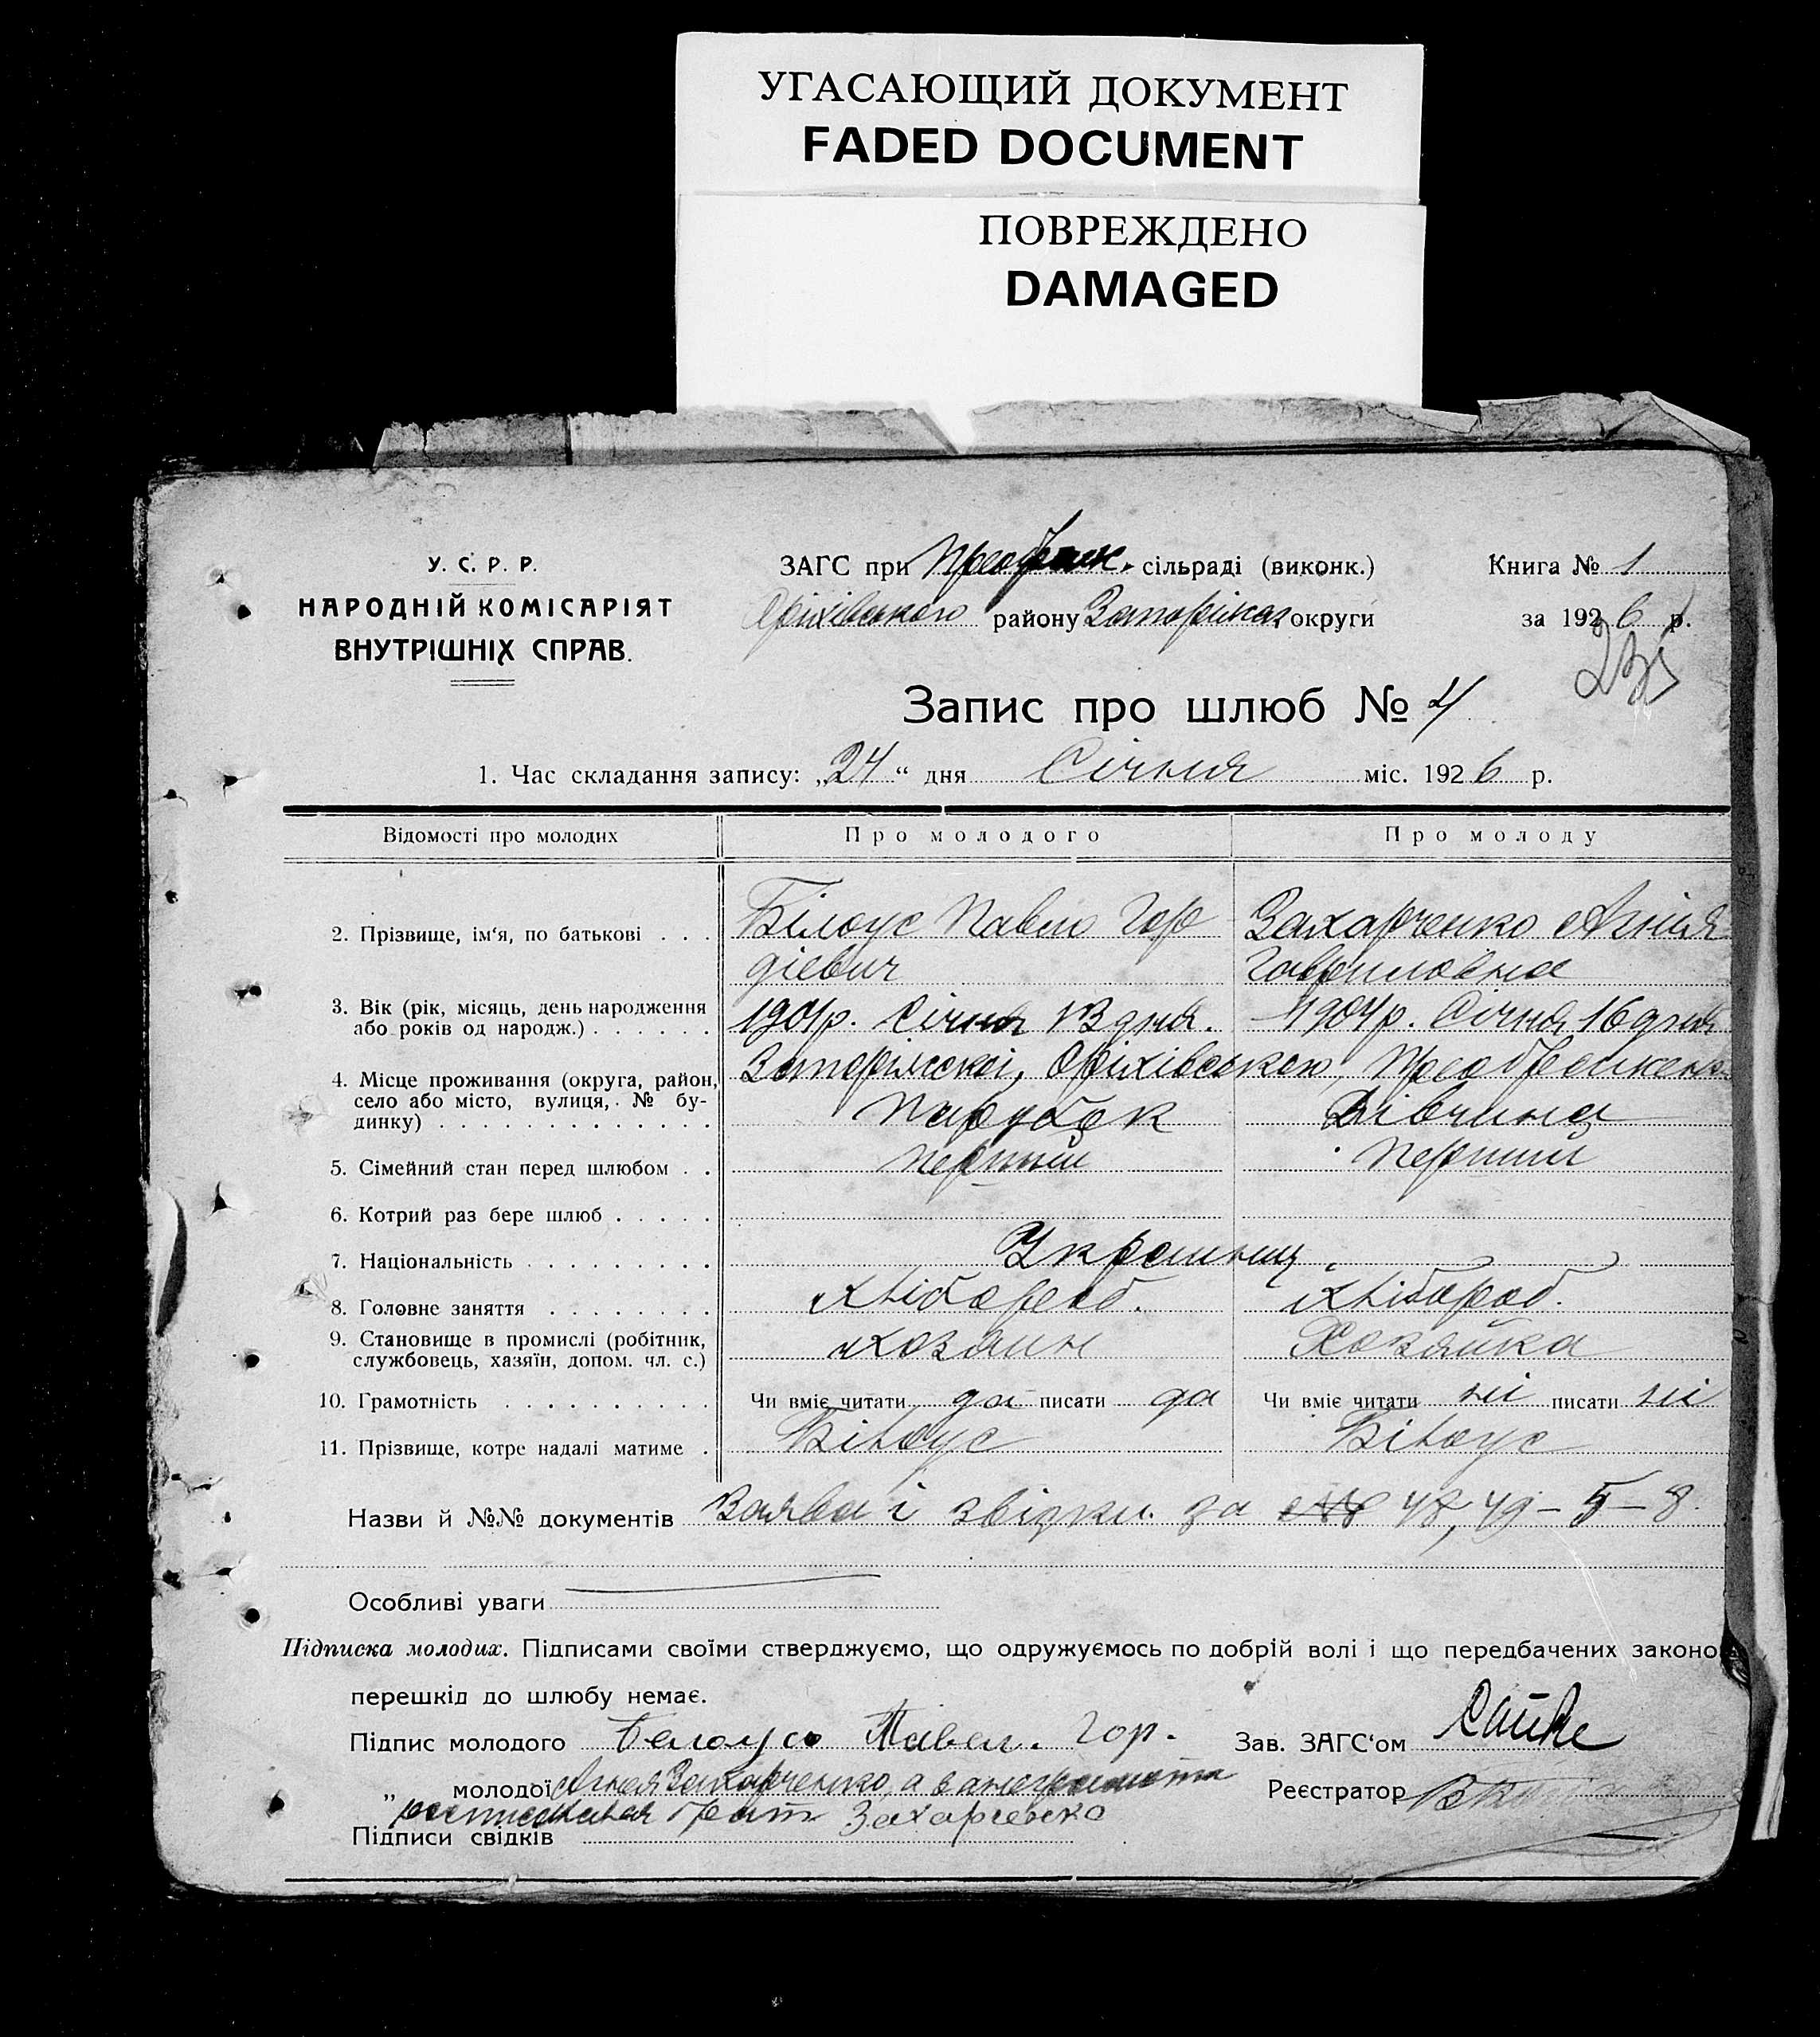 УГАСАЮЩИЙ ДОКУМЕНТ
FADED DOCUMENT
ПОВРЕЖДЕНО
DAMAGED
У. С. Р. Р.
НАРОДНІЙ КОМІСАРІЯТ
ВНУТРІШНІХ СПРАВ.
ЗАГС при сільраді (виконк.)
Оріхівського району округи
Книга № 1
за 1926 р.
Запис про шлюб № 4
1. Час складання запису: „24“ дня Січня міс. 1926 р.
Відомості про молодих Про молодого Про молоду
2. Прізвище, ім'я, по батькові . . .
Білоус Павло Гор
дієвич
Захарченко Агнія
Гавриловна
3. Вік (рік, місяць, день народження
або років од народж.) . . . . . .
1901р. Січня 13 дня. 1904р. Січня 16 дня
4. Місце проживання (округа, район,
село або місто, вулиця, № бу-
динку) . . . . . . . . . . . . .
Запоріжскої, Оріхівського,
Парубок Дівчина
5. Сімейний стан перед шлюбом . .
Перший Перший
6. Котрий раз бере шлюб . . . . .
7. Національність . . . . . . . . .
8. Головне заняття . . . . . . . .
Хлібороб. Хлібороб.
9. Становище в промислі (робітник,
службовець, хазяїн, допом. чл. с.)
Хозяин Хозяйка
10. Грамотність . . . . . . . . . . Чи вміє читати да писати да Чи вміє читати ні писати ні
11. Прізвище, котре надалі матиме . Білоус Білоус
Назви й №№ документів Заява і звідки за № 48, 49 – 5 – 8.
Особливі уваги
Підписка молодих. Підписами своїми стверджуємо, що одружуємось по добрій волі і що передбачених законо
перешкід до шлюбу немає.
Підпис молодого Белоусъ Павел. Гор. Зав. ЗАГС'ом
„ молодої Агнея Захарченко, а Реєстратор
Захарченко
Підписи свідків